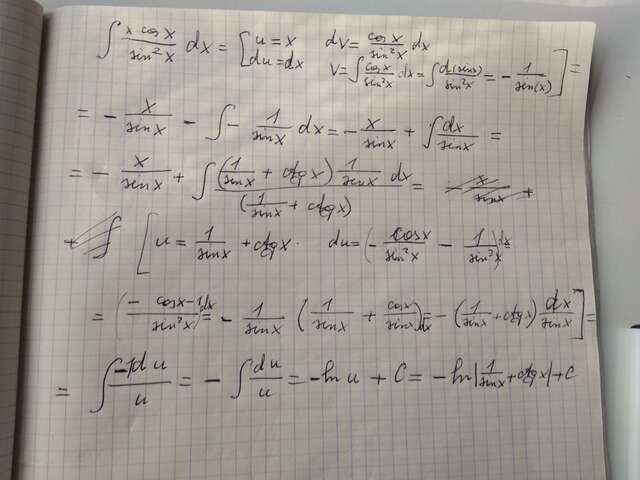 ∫ x cos x / sin² x dx = [ u = x   dv = cos x / sin² x dx
du = dx   v = ∫ cos x / sin² x dx = ∫ d(sin x) / sin² x = - 1 / sin(x) ] =
= - x / sin x - ∫ - 1 / sin x dx = - x / sin x + ∫ dx / sin x =
= - x / sin x + ∫ (1 / sin x + ctg x) 1 / sin x dx / (1 / sin x + ctg x) =
[ u = 1 / sin x + ctg x.   du = (- cos x / sin² x - 1 / sin² x) dx =
= (- cos x - 1 / sin² x) dx = - 1 / sin x (1 / sin x + cos x / sin x) dx = - (1 / sin x + ctg x) dx / sin x ] =
= ∫ -1 du / u = - ∫ du / u = - ln u + C = - ln |1 / sin x + ctg x| + C